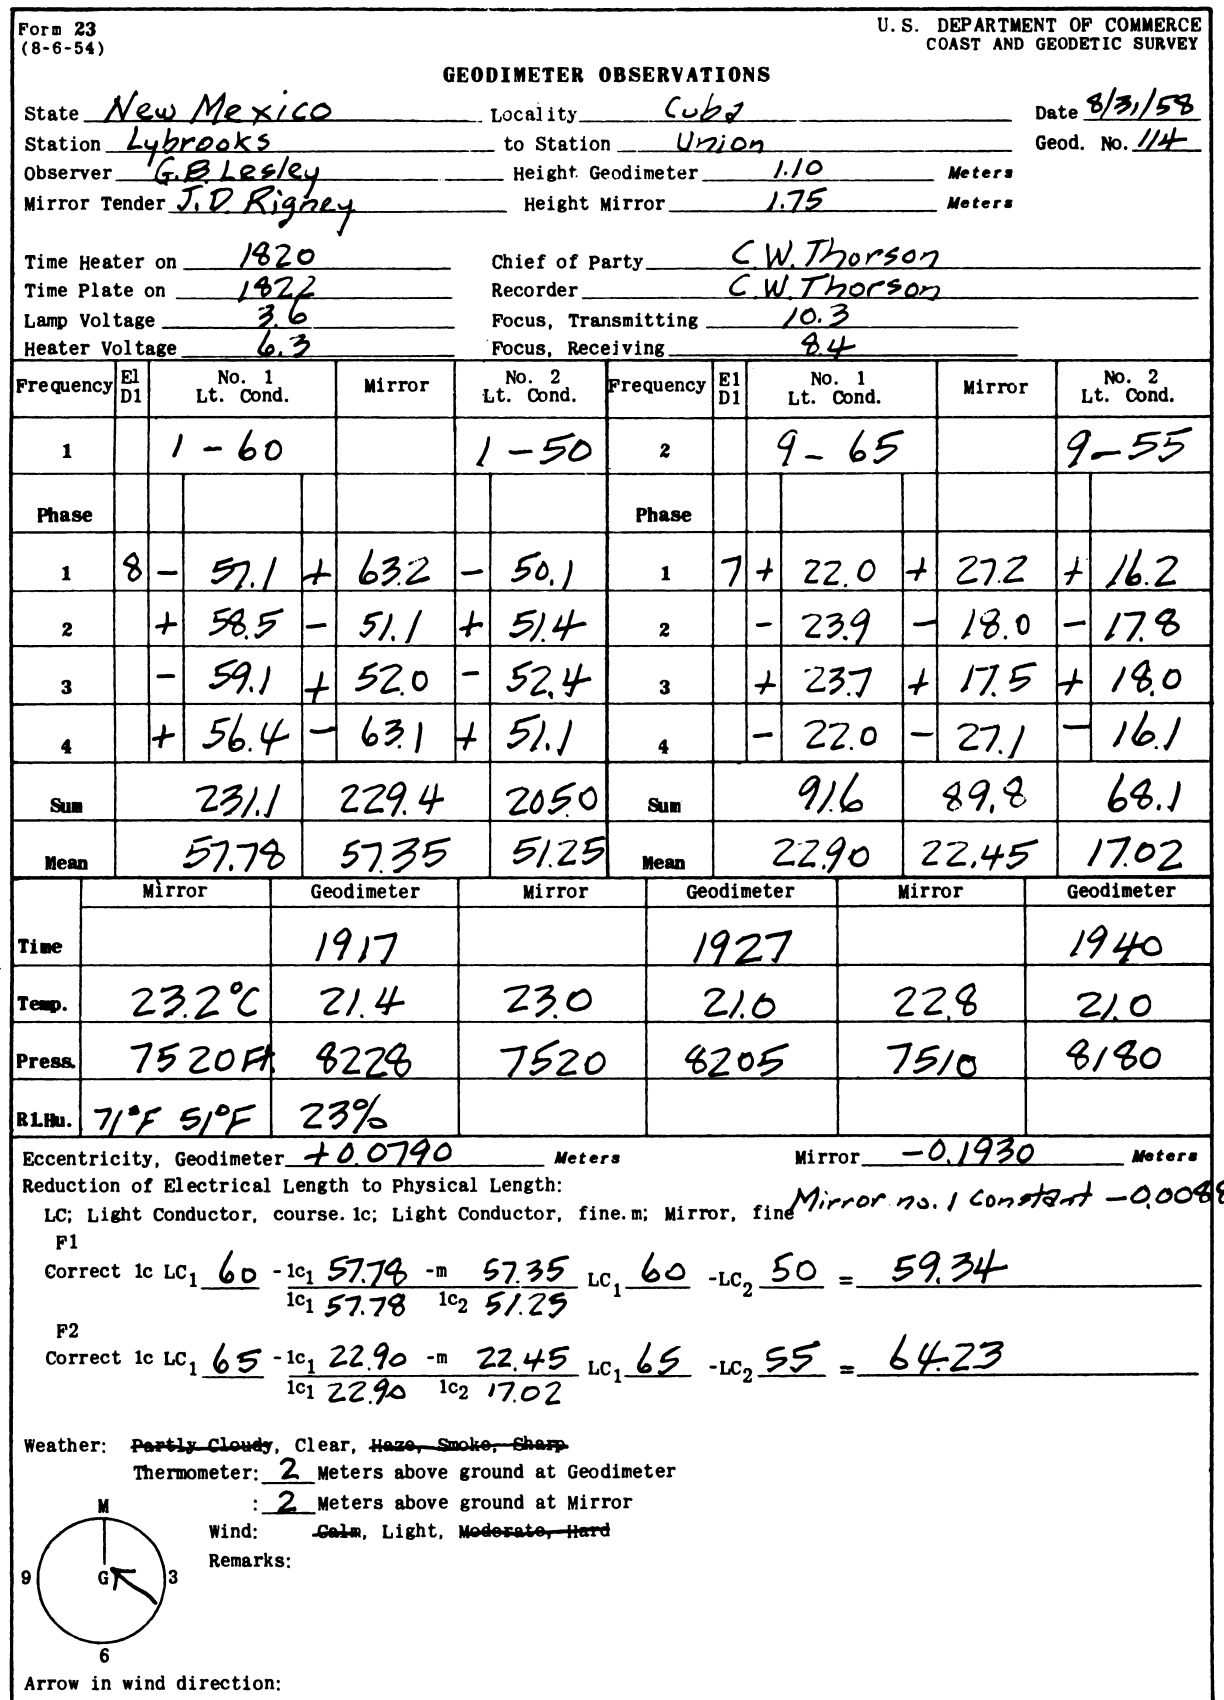 Form 23
(8-6-54)
U. S. DEPARTMENT OF COMMERCE
COAST AND GEODETIC SURVEY
GEODIMETER OBSERVATIONS
State New Mexico Locality Cuba Date 8/31/58
Station Lybrooks to Station Union Geod. No. 114
Observer G.B. Lesley Height Geodimeter 1.10 Meters
Mirror Tender J.D. Rigney Height Mirror 1.75 Meters
Time Heater on 1820 Chief of Party C.W. Thorson
Time Plate on 1822 Recorder C.W. Thorson
Lamp Voltage 3.6 Focus, Transmitting 10.3
Heater Voltage 6.3 Focus, Receiving 8.4
Frequency El D1 No. 1 Lt. Cond. Mirror No. 2 Lt. Cond. Frequency E1 D1 No. 1 Lt. Cond. Mirror No. 2 Lt. Cond.
1 1 - 60 1 - 50 2 9 - 65 9 - 55
Phase Phase
1 8 - 57.1 + 63.2 - 50.1 1 7 + 22.0 + 27.2 + 16.2
2 + 58.5 - 51.1 + 51.4 2 - 23.9 - 18.0 - 17.8
3 - 59.1 + 52.0 - 52.4 3 + 23.7 + 17.5 + 18.0
4 + 56.4 - 63.1 + 51.1 4 - 22.0 - 27.1 - 16.1
Sum 231.1 229.4 205.0 Sum 91.6 89.8 68.1
Mean 57.78 57.35 51.25 Mean 22.90 22.45 17.02
Mirror Geodimeter Mirror Geodimeter Mirror Geodimeter
Time 1917 1927 1940
Temp. 23.2°C 21.4 23.0 21.0 22.8 21.0
Press. 7520 Ft. 8228 7520 8205 7510 8180
Rl.Hu. 71°F 51°F 23%
Eccentricity, Geodimeter +0.0790 Meters Mirror -0.1930 Meters
Reduction of Electrical Length to Physical Length:
Mirror no. 1 constant -0.0088
LC; Light Conductor, course. lc; Light Conductor, fine. m; Mirror, fine
F1
Correct lc LC1 60 - lc1 57.78 - m 57.35 LC1 60 - LC2 50 = 59.34
lc1 57.78 lc2 51.25
F2
Correct lc LC1 65 - lc1 22.90 - m 22.45 LC1 65 - LC2 55 = 64.23
lc1 22.90 lc2 17.02
Weather: Partly Cloudy, Clear, Haze, Smoke, Sharp
Thermometer: 2 Meters above ground at Geodimeter
: 2 Meters above ground at Mirror
Wind: Calm, Light, Moderate, Hard
Remarks:
M
9 G 3
6
Arrow in wind direction: